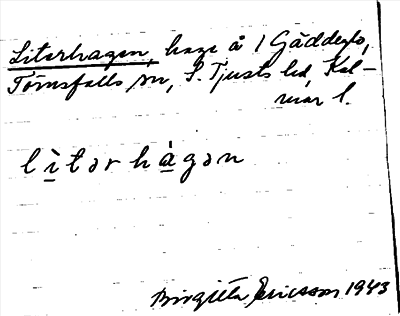 Literhagen, hage å 1 Gäddeglo,
Törnsfalls sn, S. Tjusts hd, Kal-
mar l.
lìtərhàgən
Birgitta Ericsson 1943